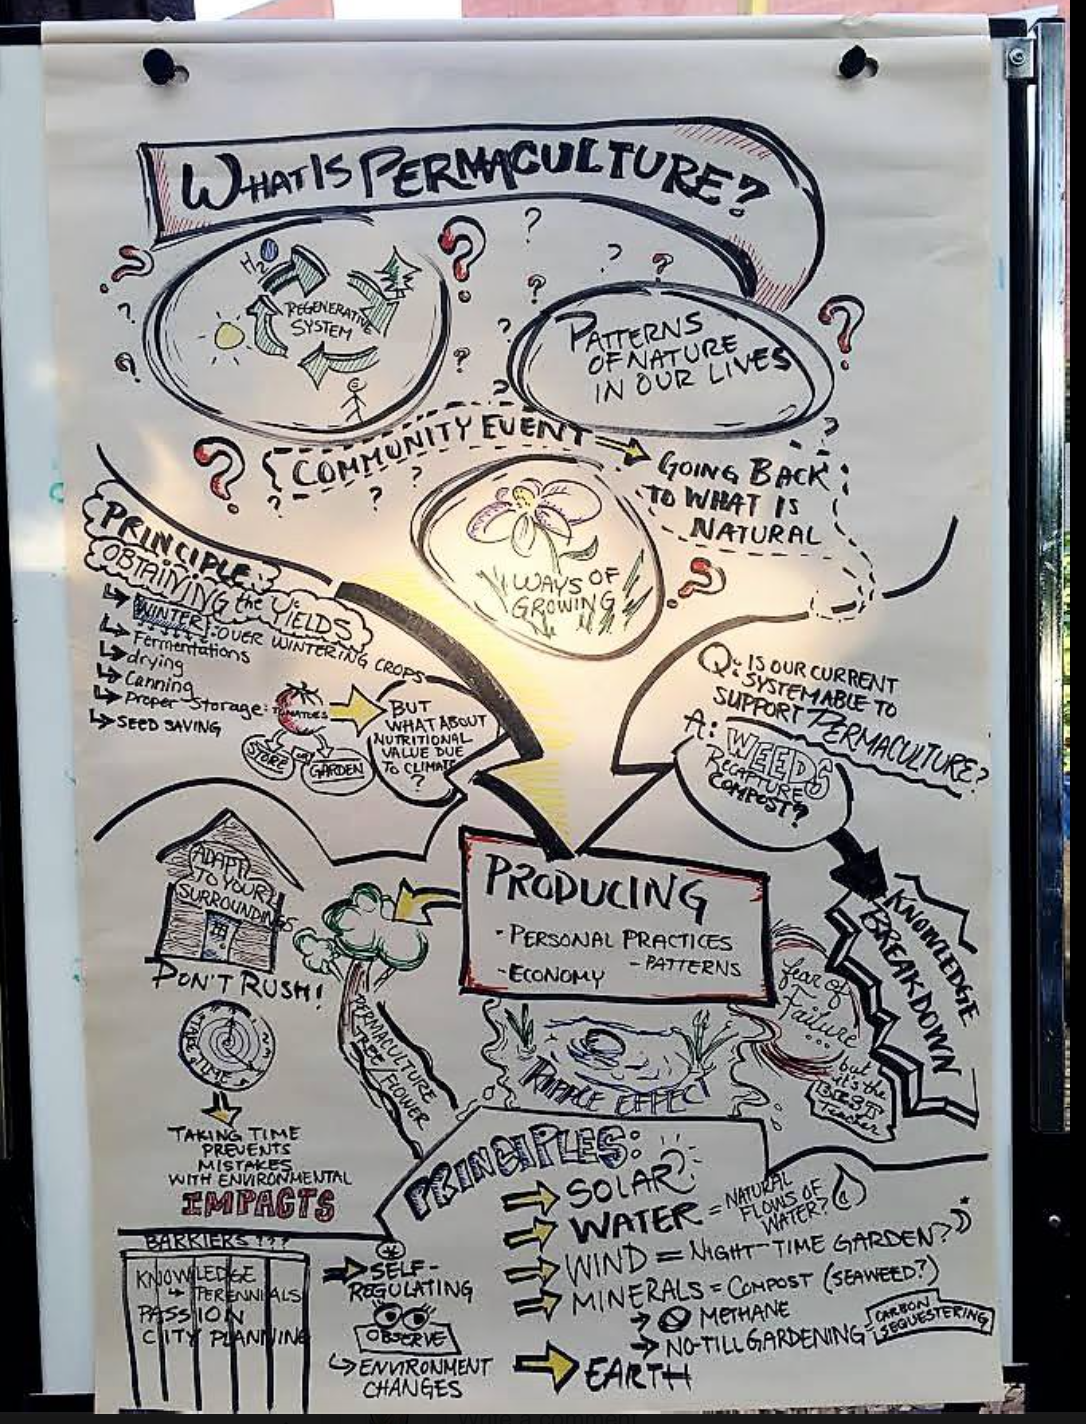 WHAT IS PERMACULTURE?
H2O
REGENERATIVE
SYSTEM
PATTERNS
OF NATURE
IN OUR LIVES
COMMUNITY EVENT
GOING BACK
TO WHAT IS
NATURAL
WAYS OF
GROWING
PRINCIPLE:
OBTAINING the YIELDS
WINTER: OVER WINTERING CROPS
Fermentations
drying
Canning
Proper Storage: TOMATOES
SEED SAVING
STORE OR GARDEN
BUT
WHAT ABOUT
NUTRITIONAL
VALUE DUE
TO CLIMATE
?
Q: IS OUR CURRENT
SYSTEM ABLE TO
SUPPORT PERMACULTURE?
A: WEEDS
RECAPTURE
COMPOST?
KNOWLEDGE
BREAKDOWN
ADAPT
TO YOUR
SURROUNDINGS
DON'T RUSH!
TAKE
TIME
TAKING TIME
PREVENTS
MISTAKES
WITH ENVIRONMENTAL
IMPACTS
PERMACULTURE
TREE/FLOWER
PRODUCING
- PERSONAL PRACTICES
- ECONOMY - PATTERNS
RIPPLE EFFECT
fear of
Failure
...
but
it's the
BEST
Teacher
PRINCIPLES:
SOLAR
WATER = NATURAL
FLOWS OF
WATER?
WIND = NIGHT-TIME GARDEN?
MINERALS = COMPOST (SEAWEED?)
METHANE
NO-TILL GARDENING = CARBON
SEQUESTERING
EARTH
BARRIERS???
KNOWLEDGE
PERENNIALS
PASSION
CITY PLANNING
* SELF-
REGULATING
OBSERVE
ENVIRONMENT
CHANGES
Write a comment